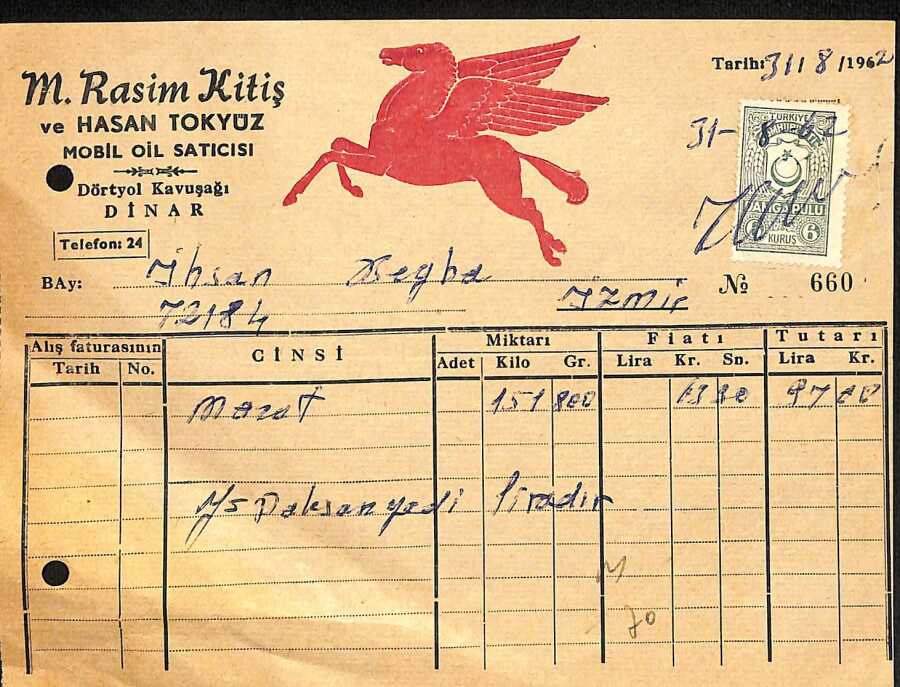 M. Rasim Kitiş
ve HASAN TOKYÜZ
MOBİL OİL SATICISI
Dörtyol Kavuşağı
DİNAR
Telefon: 24
Tarih: 31 / 8 / 1962
31-8-62
TÜRKİYE
CUMHURİYETİ
DAMGA PULU
6 KURUŞ 6
BAy: İhsan
72184 İzmir
№ 660
Alış faturasının CİNSİ Miktarı Fiatı Tutarı
Tarih No. Adet Kilo Gr. Lira Kr. Sn. Lira Kr.
Mazot 151 800 97 00
Y/S Doksanyedi liradır
70